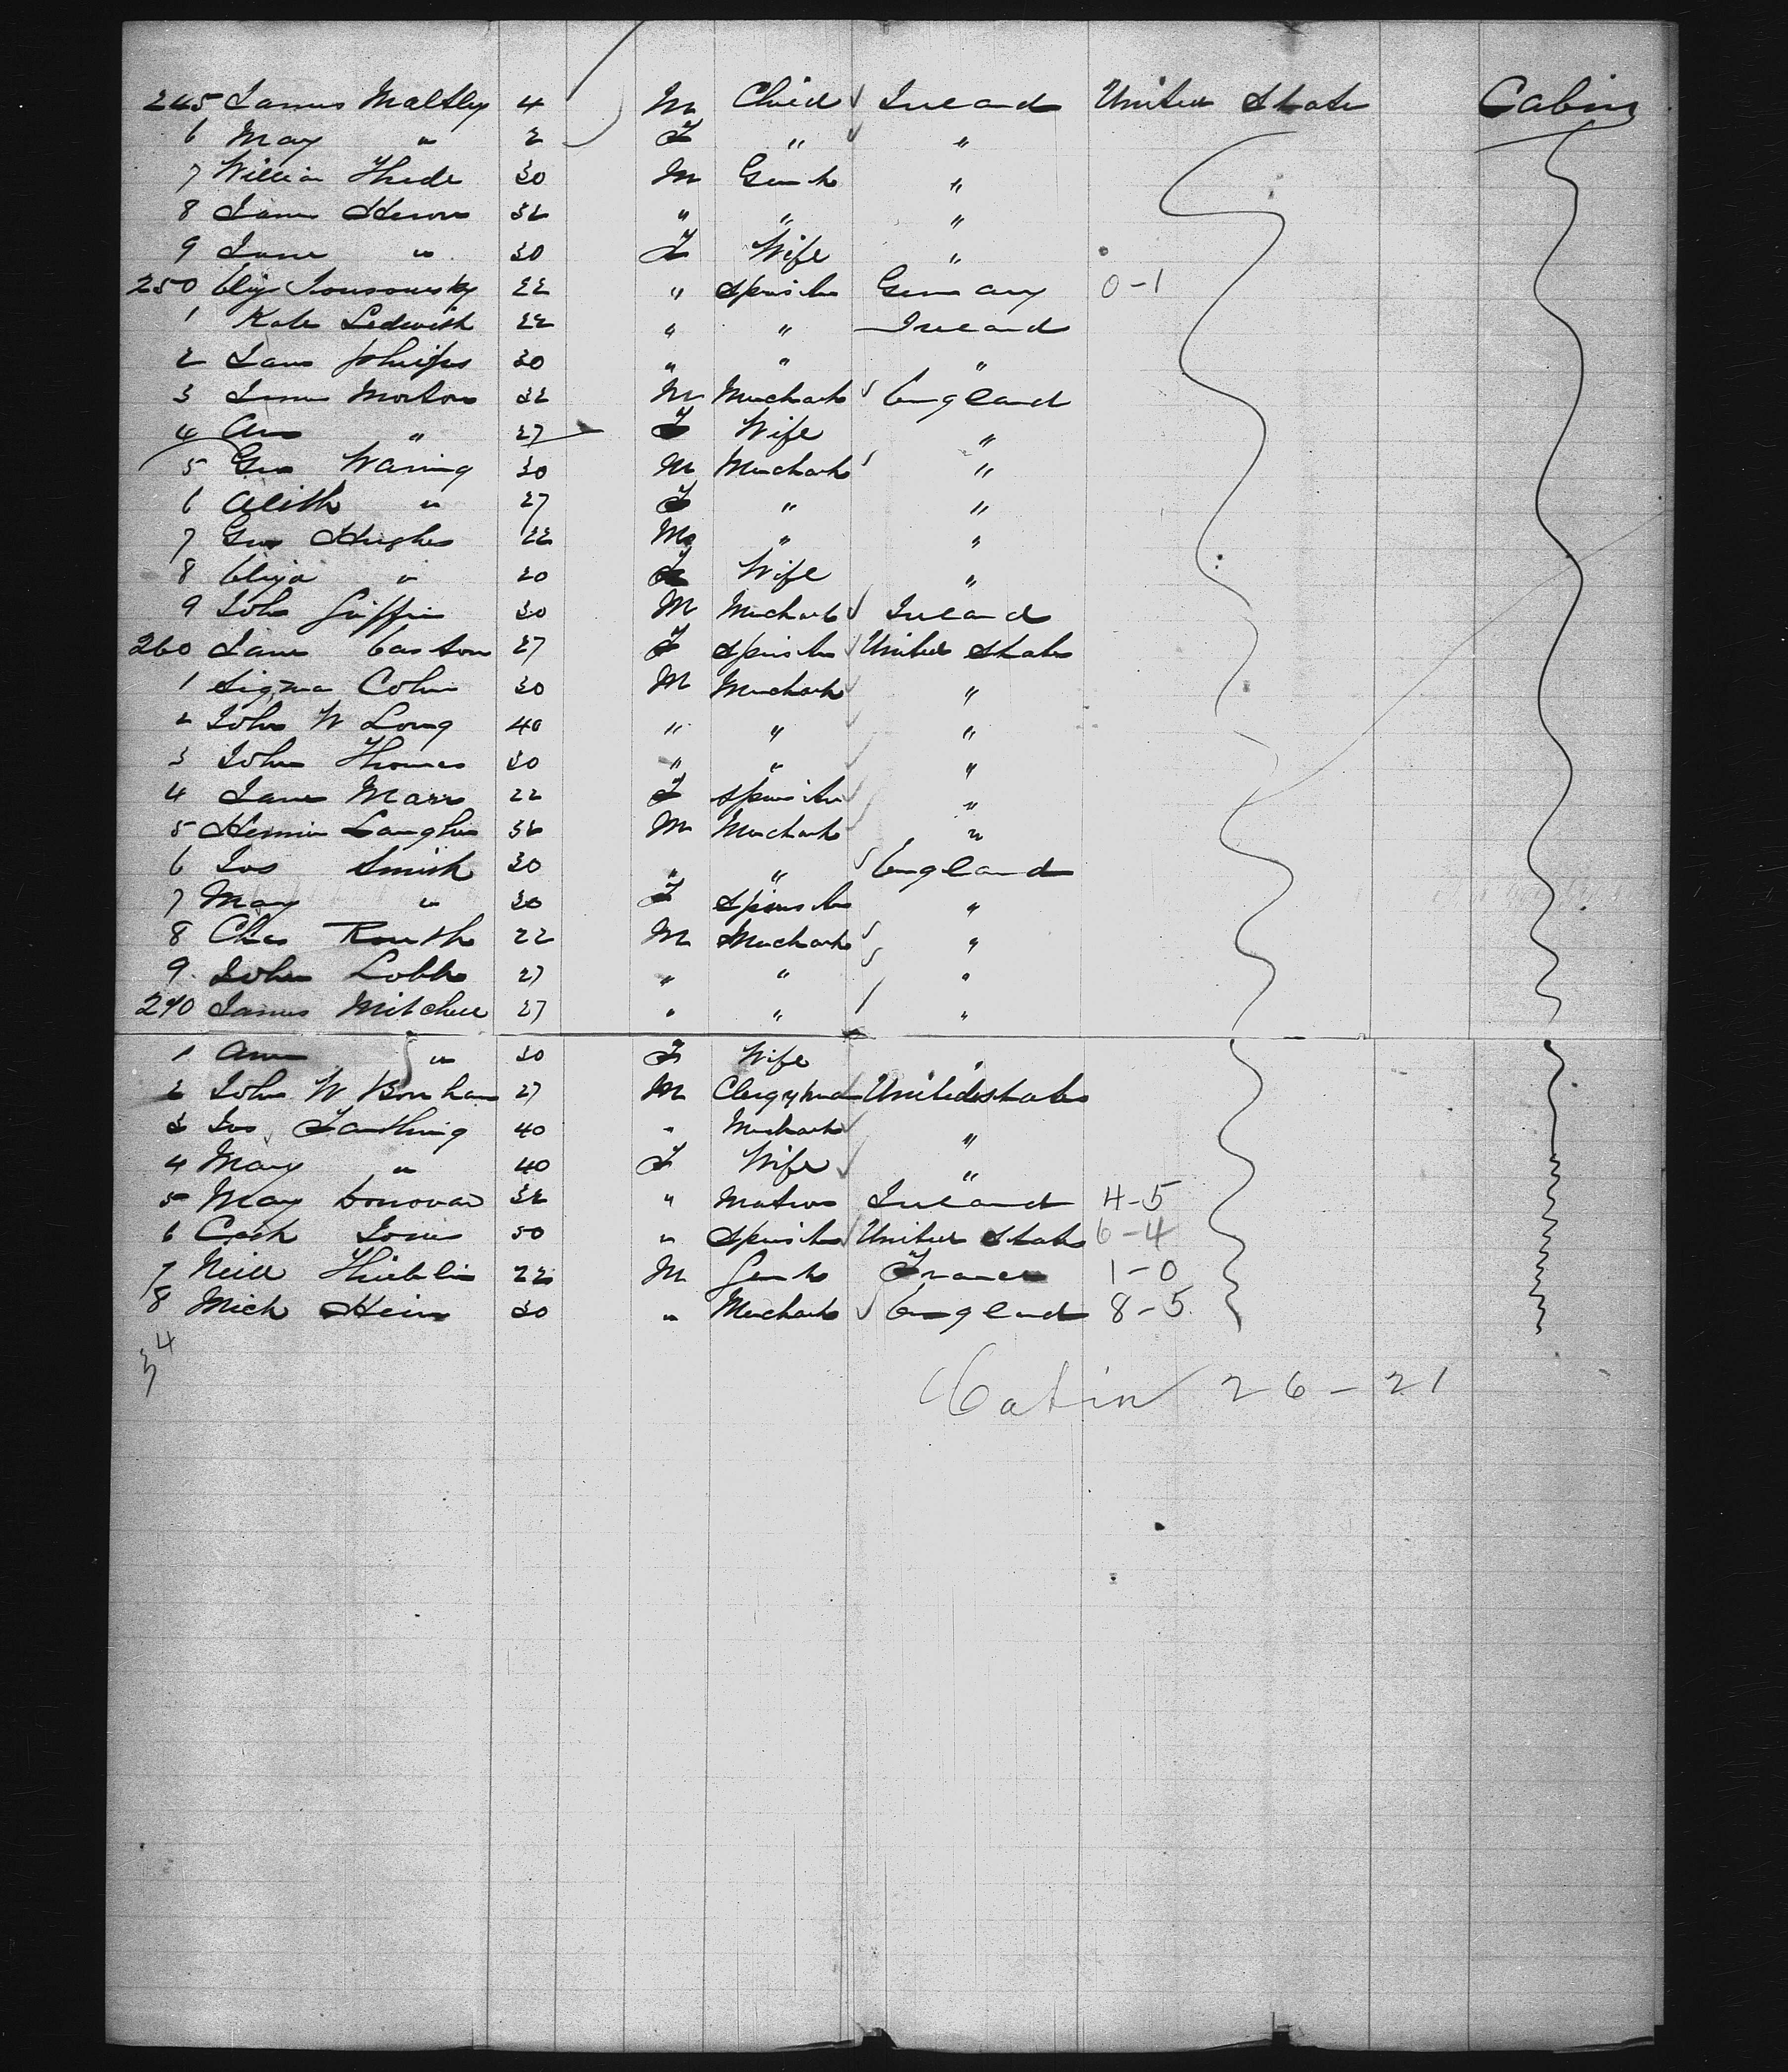 245 James Maltby 4 M Child Ireland United State Cabin
6 May " 2 F " "
7 William Thede 30 M Gent "
8 James Heron 32 " " "
9 Jane " 30 F Wife "
250 Eliz 22 " Spinster Germany 0-1
1 Kate Ledwith 22 " " Ireland
2 Jane Philips 30 " " "
3 Morton 32 M Merchant England
4 Ann " 27 F Wife "
5 Geo Waring 30 M Merchant "
6 Alith " 27 F " "
7 Geo Hughes 22 M " "
8 Eliza " 20 F Wife "
9 John Griffin 30 M Merchant Ireland
260 Jane Easton 27 F Spinster United States
1 Sigma Cohn 30 M Merchant "
2 John W Long 40 " " "
3 John Thomas 30 " " "
4 Jane Marr 22 F Spinster "
5 32 M Merchant "
6 Jos Smith 30 " " England
7 May " 30 F Spinster "
8 Chas Routh 22 M Merchant "
9 John Lobb 27 " " "
270 James Mitchell 27 " " "
1 Ann " 30 F Wife "
2 John W Bonham 27 M Clergyman United States
3 Jos Farthing 40 " Merchant "
4 Mary " 40 F Wife "
5 May Donovan 32 " Matron Ireland 4-5
6 Jones 50 " Spinster United States 6-4
7 Neill Thieblin 22 M Gent France 1-0
8 Mich Hein 30 " Merchant England 8-5
34
Cabin 26-21